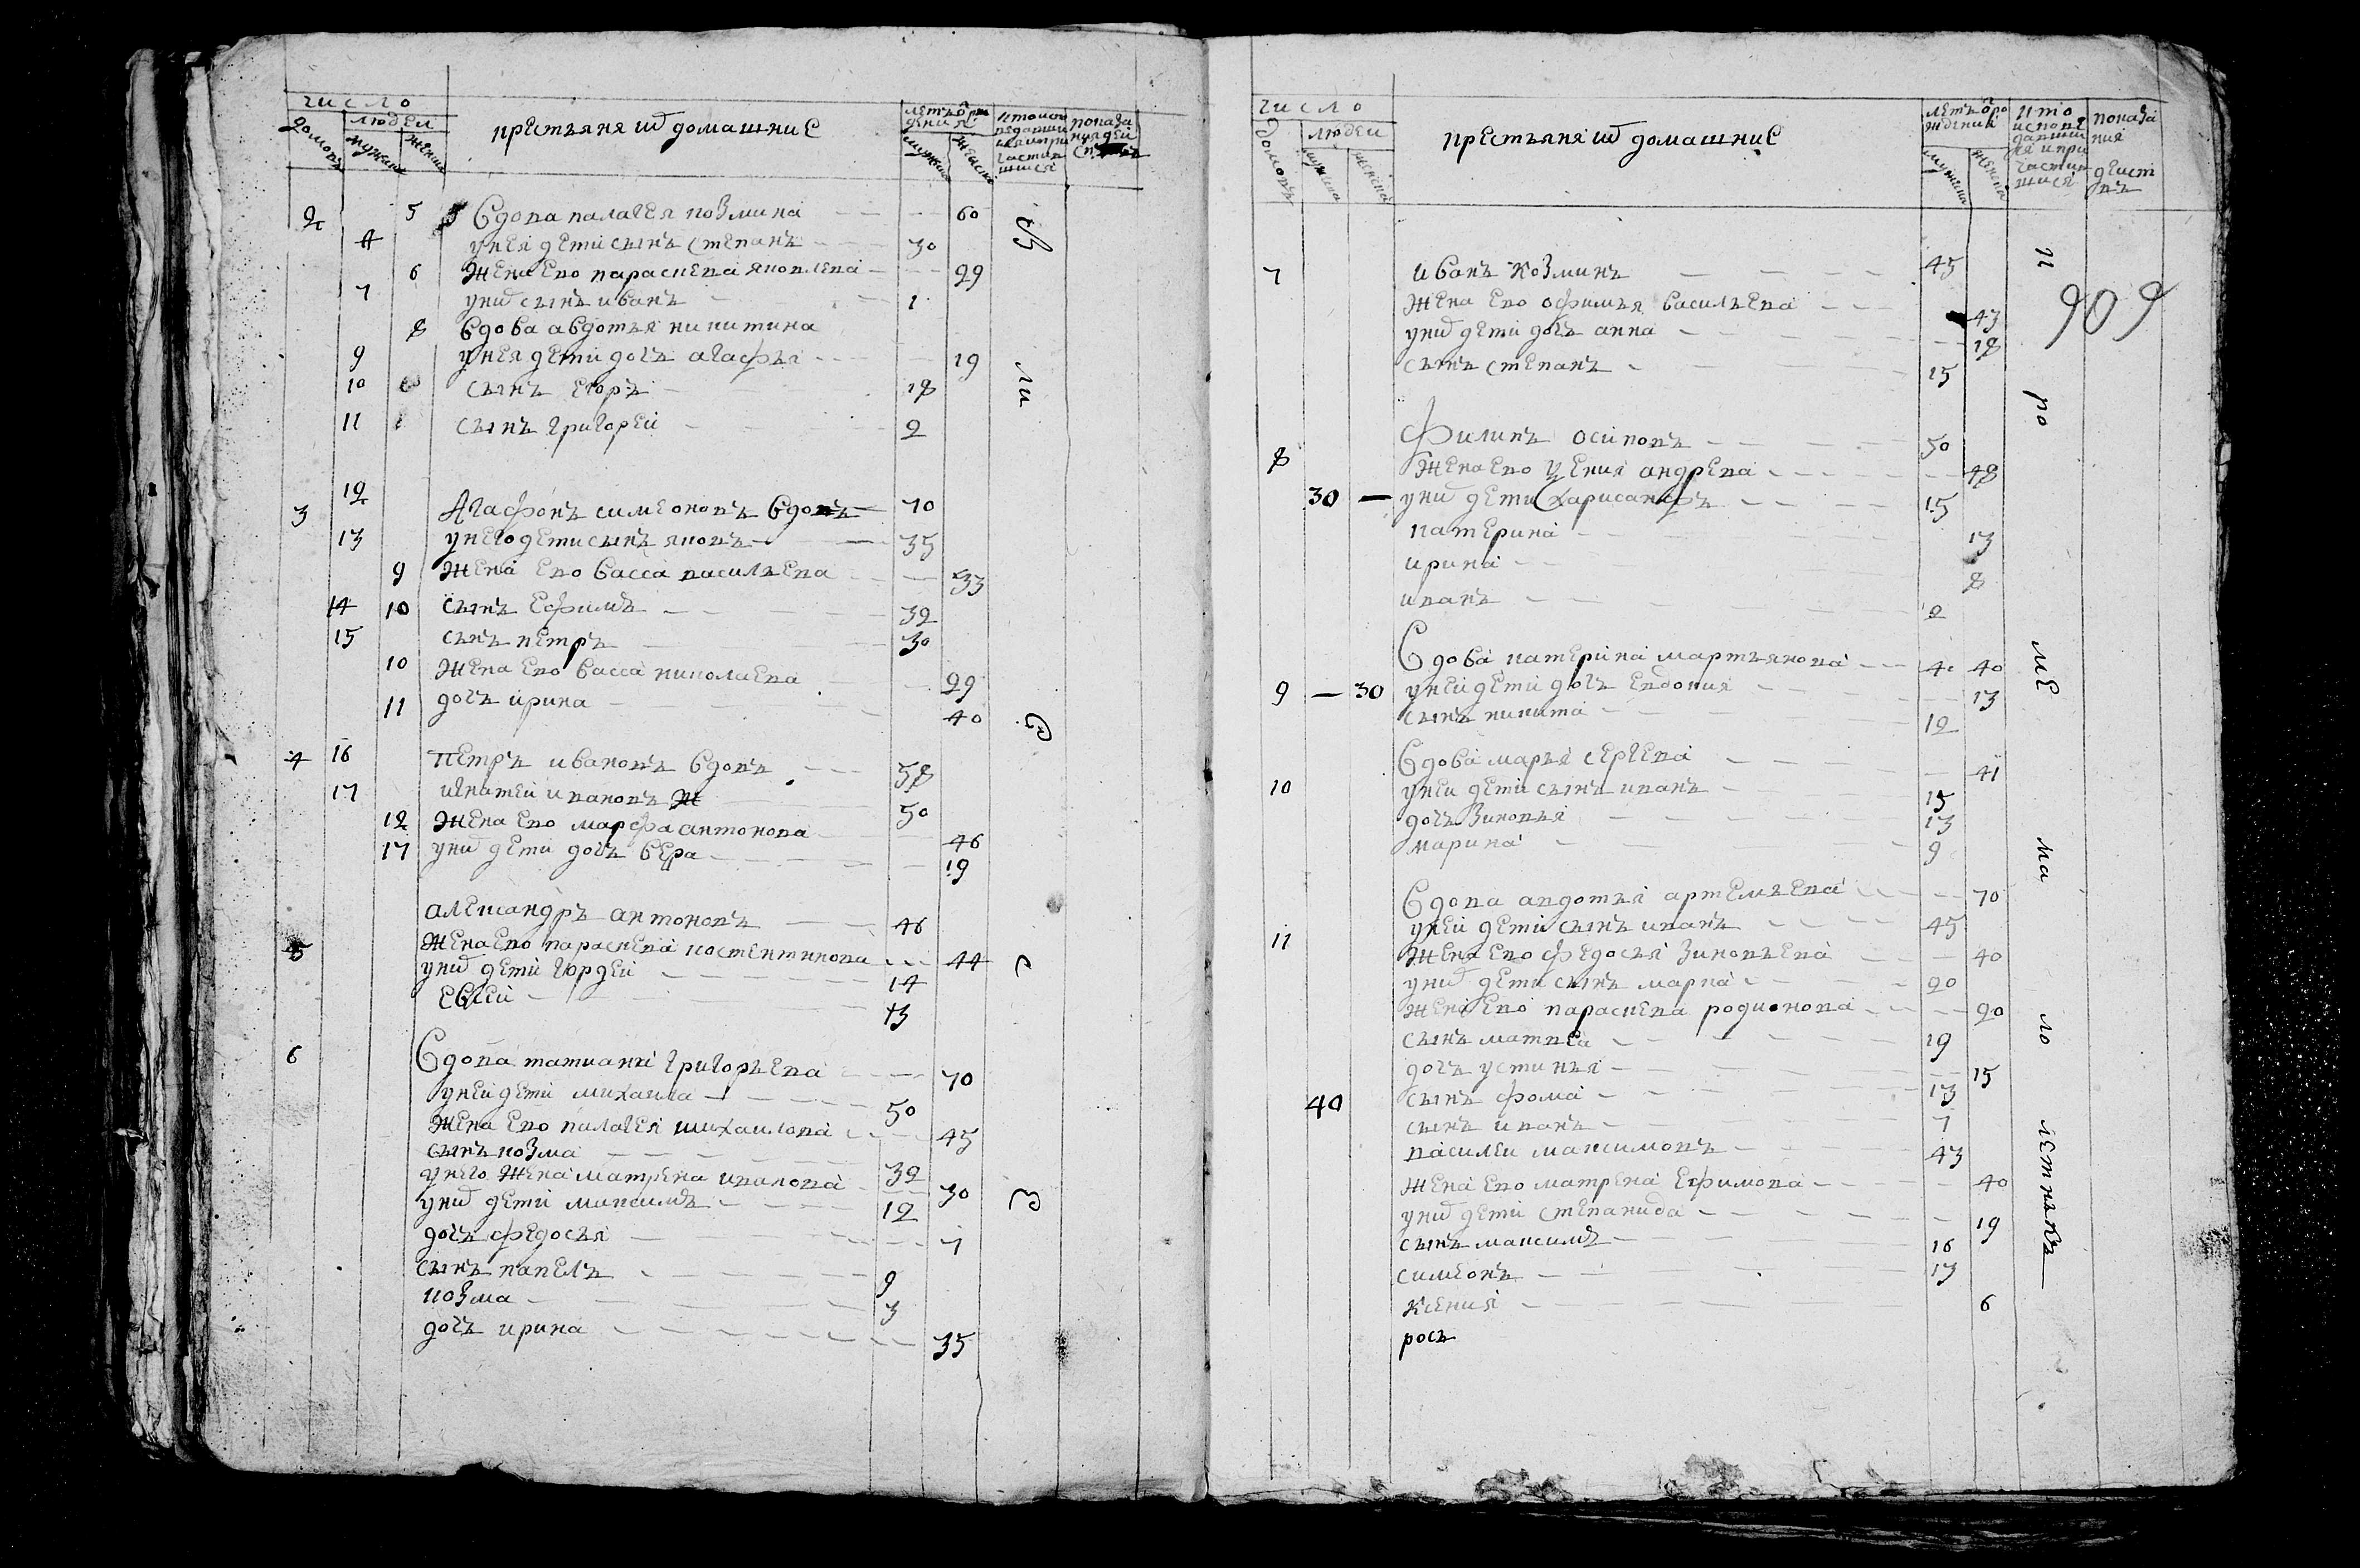 число
людей
домовъ
мужска
женска
крестьяня и домашние
летъ от рождения
мужска
женска
кто исповедались и причастившися
показания действъ
2 5 Вдова палагея козмина 60
4 у нея дети сынъ степанъ 30
6 жена ево параскева яковлева 29
7 у них сынъ иванъ 1
8 вдова авдотья никитина
9 у нея дети дочь агафья 19
10 сынъ егоръ 18
11 сынъ григорей 2
3 12 Агафонъ симеоновъ вдовъ 70
13 у него дети сынъ яковъ 35
9 жена ево васса васильева 33
14 10 сынъ ефимъ 32
15 сынъ петръ 30
10 жена ево васса николаева 29
11 дочь ирина 40
4 16 петръ ивановъ вдовъ 58
17 игнатей ивановъ 50
12 жена ево марфа антонова 46
17 у них дети дочь вера 19
александръ антоновъ 46
5 жена ево параскева костентинова 44
у них дети гордей 14
евсей 13
6 Вдова татиана григорьева 70
у ней дети михаила 50
жена ево палагея михаилова 45
сынъ козма 32
у него жена матрена иванова 30
у них дети максимъ 12
дочь федосья 7
сынъ павелъ 9
козма 3
дочь ирина 35
число
людей
домовъ
мужска
женска
крестьяня и домашние
летъ от рождения
мужска
женска
кто исповедавшияся и причастившися
показания действъ
909
7 иванъ козминъ 45
жена ево офимья васильева 43
у них дети дочь анна 18
сынъ степанъ 15
8 Филипъ осиповъ 50
жена ево ксения андрева 48
30 у них дети харисанфъ 15
катерина 13
ирина 8
иванъ 2
Вдова катерина мартьянова 40 40
9 30 у ней дети дочь евдокия 13
сынъ никита 12
Вдова марья сергева 41
10 у ней дети сынъ иванъ 15
дочь зиновья 13
марина 9
Вдова авдотья артемьева 70
11 у ней дети сынъ иванъ 45
жена ево федосья зиновьева 40
у них дети сынъ марка 20
жена ево параскева родионова 20
сынъ матвеа 19
дочь устинья 15
40 сынъ фома 13
сынъ иванъ 7
василеи максимовъ 43
жена ево матрена ефимова 40
у них дети степанида 19
сынъ максимъ 16
симеонъ 13
ксения 6
рось
кроме малолетныхъ